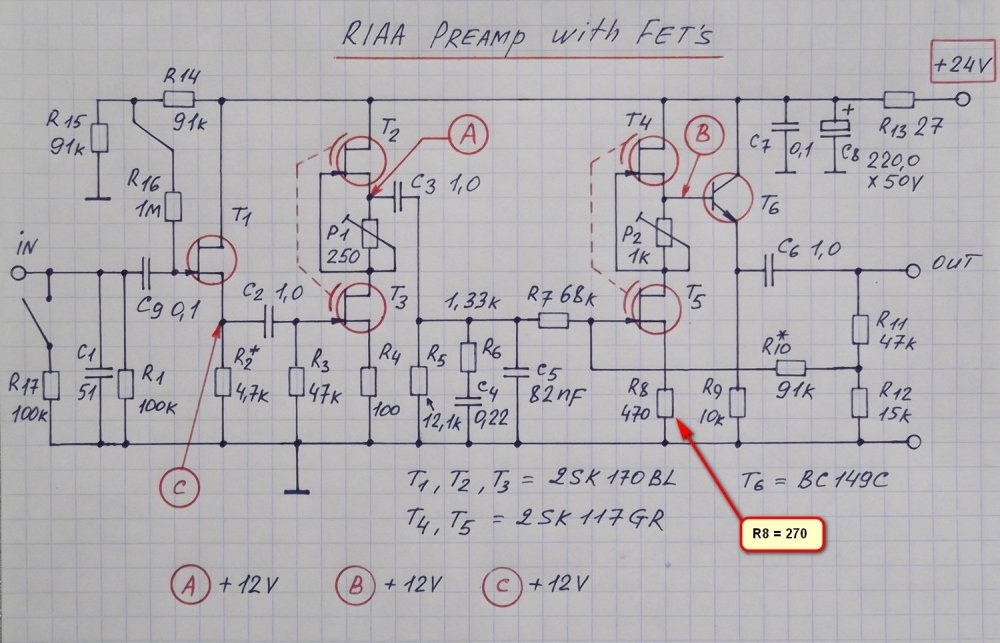 RIAA PREAMP with FET's
+24V
R14
91k
R15
91k
R16
1M
T1
T2
A
C3 1,0
P1
250
T3
T4
B
T6
P2
1k
T5
C7
0,1
+
C8
220,0
x50V
R13 27
iN
C9 0,1
C2 1,0
1,33k
R7 68k
C6 1,0
OUT
R17
100k
C1
51
R1
100k
R2*
4,7k
R3
47k
R4
100
R5
12,1k
R6
C4
0,22
C5
82nF
R8
470
R9
10k
R10*
91k
R11
47k
R12
15k
C
T1, T2, T3 = 2SK170BL
T6 = BC149C
T4, T5 = 2SK117GR
R8 = 270
A +12V B +12V C +12V